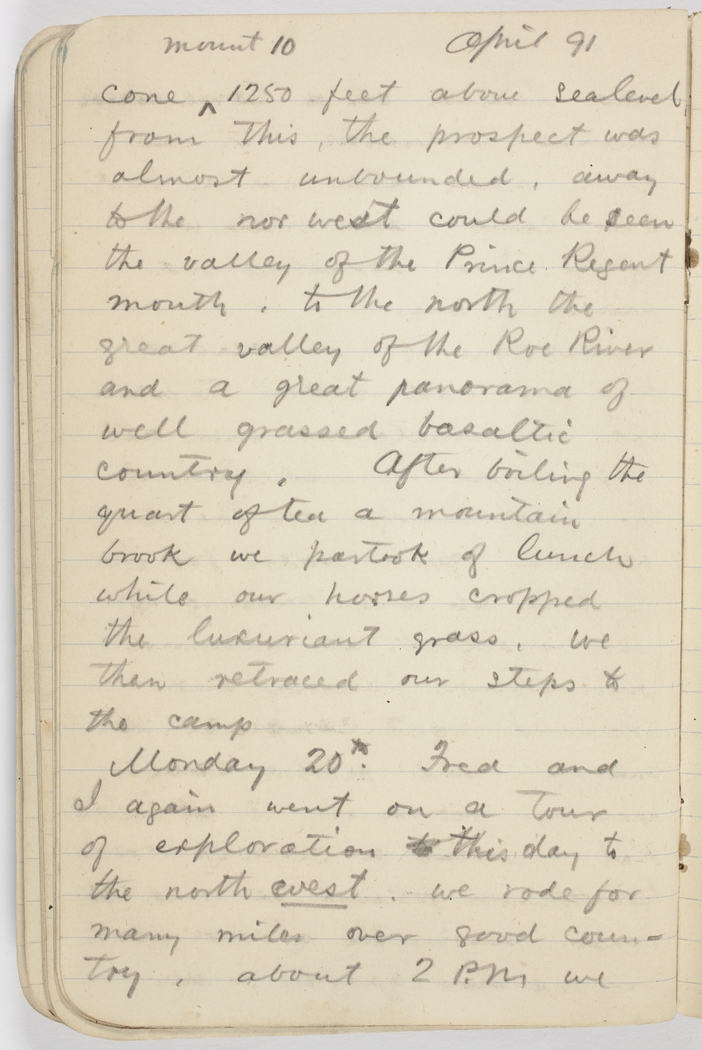 mount 10 April 91
cone ^ 1250 feet above sealevel
from this, the prospect was
almost unbounded, away
to the nor west could be seen
the valley of the Prince Regent
mouth, to the north the
great valley of the Roe River
and a great panorama of
well grassed basaltic
country. After boiling the
quart of tea a mountain
brook we partook of lunch
while our horses cropped
the luxuriant grass, we
then retraced our steps to
the camp
Monday 20th. Fred and
I again went on a Tour
of exploration this day to
the north west. we rode for
many miles over good coun-
try, about 2 P.M. we